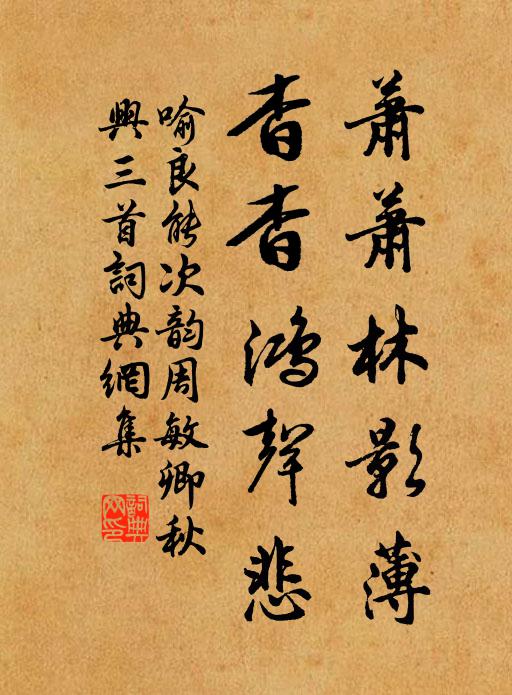 蕭蕭林影薄
杳杳鴻聲悲
喻良能次韵周敏卿秋
興三首詞典網集
詞典網印